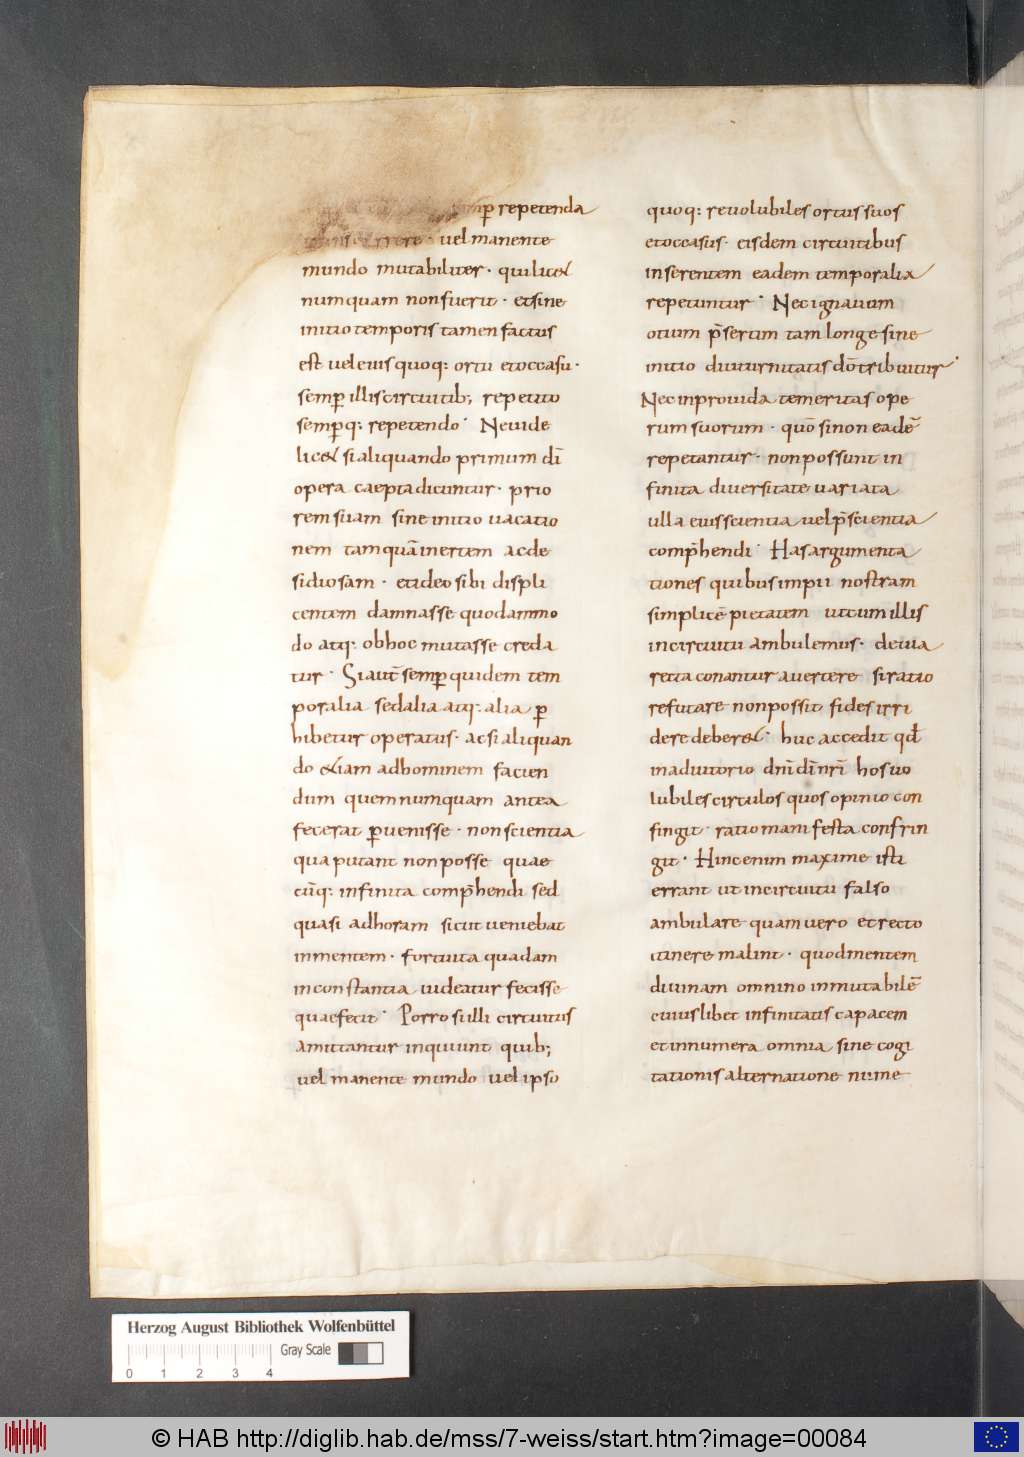 semꝑ repetenda
transcurrere · uel manente
mundo mutabiliter · qui lic&
numquam non fuerit · et sine
initio temporis tamen factus
est uel eius quoq: ortu et occasu ·
semꝑ illis circuitib; repetito
semꝑq: repetendo · Ne uide
lic& si aliquando primum dī
opera caepta dicuntur · prio
rem suam sine initio uacatio
nem tamquā inertem ac de
sidiosam · et ideo sibi displi
centem damnasse quodammo
do atq: ob hoc mutasse creda
tur · Si aut̄ semꝑ quidem tem
poralia sed alia atq: alia ꝑ
hibetur operatus · ac si aliquan
do &iam ad hominem facien
dum quem numquam antea
fecerat ꝑuenisse · non scientia
qua putant non posse quae
cūq: infinita comp̄hendi sed
quasi ad horam sicut ueniebat
in mentem · fortuita quadam
inconstantia uideatur fecisse
quae fecit · Porro si illi circuitus
amittantur inquiunt quib;
uel manente mundo uel ipso
quoq: reuolubiles ortus suos
et occasus · eisdem circuitibus
inserentem eadem temporalia
repetuntur · Nec ignauum
otium p̄sertim tam longe sine
initio diuturnitatis dō tribuitur ·
Nec inprouida temeritas ope
rum suorum · quō si non eadē
repetantur · non possunt in
finita diuersitate uariata
ulla eius scientia uel p̄scientia
comp̄hendi · Has argumenta
tiones quibus impii nostram
simplicē pietatem ut cum illis
in circuitu ambulemus · de uia
recta conantur auertere si ratio
refutare non possit fides irri
dere deber& · huc accedit qđ
in adiutorio dnī dī nrī hos uo
lubiles circulos quos opinio con
fingit · ratio manifesta confrin
git · Hinc enim maxime isti
errant ut in circuitu falso
ambulare quam uero et recto
itinere malint · quod mentem
diuinam omnino inmutabilē
cuiuslibet infinitatis capacem
et innumera omnia sine cogi
tationis alternatione nume
Herzog August Bibliothek Wolfenbüttel
Gray Scale
0 1 2 3 4
© HAB http://diglib.hab.de/mss/7-weiss/start.htm?image=00084